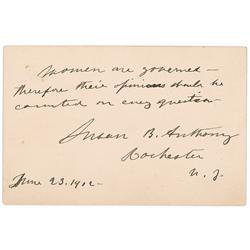 Women are governed—
therefore their opinions should be
counted on every question—
Susan B. Anthony
Rochester
N. Y.
June 23. 1902—